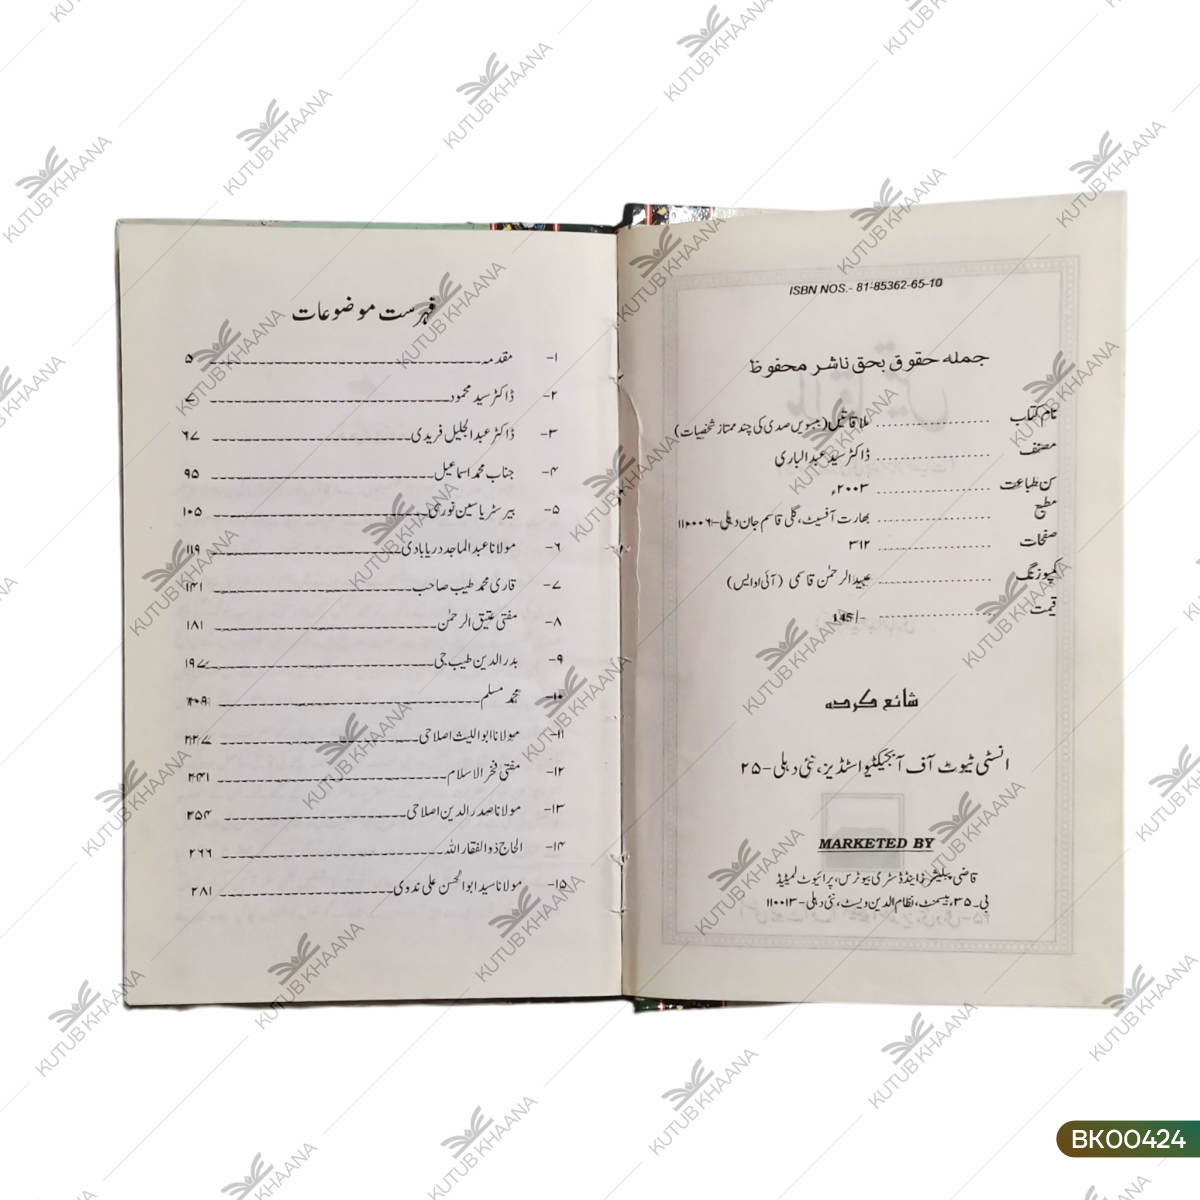 ISBN NOS.- 81-85362-65-10
جملہ حقوق بحق ناشر محفوظ
نام کتاب ---------- ملاقاتیں (بیسویں صدی کی چند ممتاز شخصیات)
مصنف ---------- ڈاکٹر سید عبدالباری
سن طباعت ---------- ۲۰۰۳ء
مطبع ---------- بھارت آفسیٹ، گلی قاسم جان دہلی-۱۱۰۰۰۶
صفحات ---------- ۳۱۲
کمپوزنگ ---------- عبیدالرحمٰن قاسمی (آئی او ایس)
قیمت ---------- 145/-
شائع کردہ
انسٹی ٹیوٹ آف آبجیکٹیو اسٹڈیز، نئی دہلی-۲۵
MARKETED BY
قاضی پبلیشرز اینڈ ڈسٹری بیوٹرس، پرائیوٹ لمیٹیڈ
بی-۳۵، بیسمنٹ، نظام الدین ویسٹ، نئی دہلی-۱۱۰۰۱۳
فہرست موضوعات
۱- مقدمہ ---------- ۵
۲- ڈاکٹر سید محمود ---------- ۷
۳- ڈاکٹر عبدالجلیل فریدی ---------- ۶۷
۴- جناب محمد اسماعیل ---------- ۹۵
۵- بیرسٹر یاسین نوری ---------- ۱۰۵
۶- مولانا عبدالماجد دریابادی ---------- ۱۱۹
۷- قاری محمد طیب صاحب ---------- ۱۴۱
۸- مفتی عتیق الرحمٰن ---------- ۱۸۱
۹- بدرالدین طیب جی ---------- ۱۹۷
۱۰- محمد مسلم ---------- ۲۰۹
۱۱- مولانا ابواللیث اصلاحی ---------- ۲۲۷
۱۲- مفتی فخر الاسلام ---------- ۲۴۱
۱۳- مولانا صدرالدین اصلاحی ---------- ۲۵۴
۱۴- الحاج ذوالفقار اللہ ---------- ۲۶۶
۱۵- مولانا سید ابوالحسن علی ندوی ---------- ۲۸۱
KUTUB KHAANA
BK00424